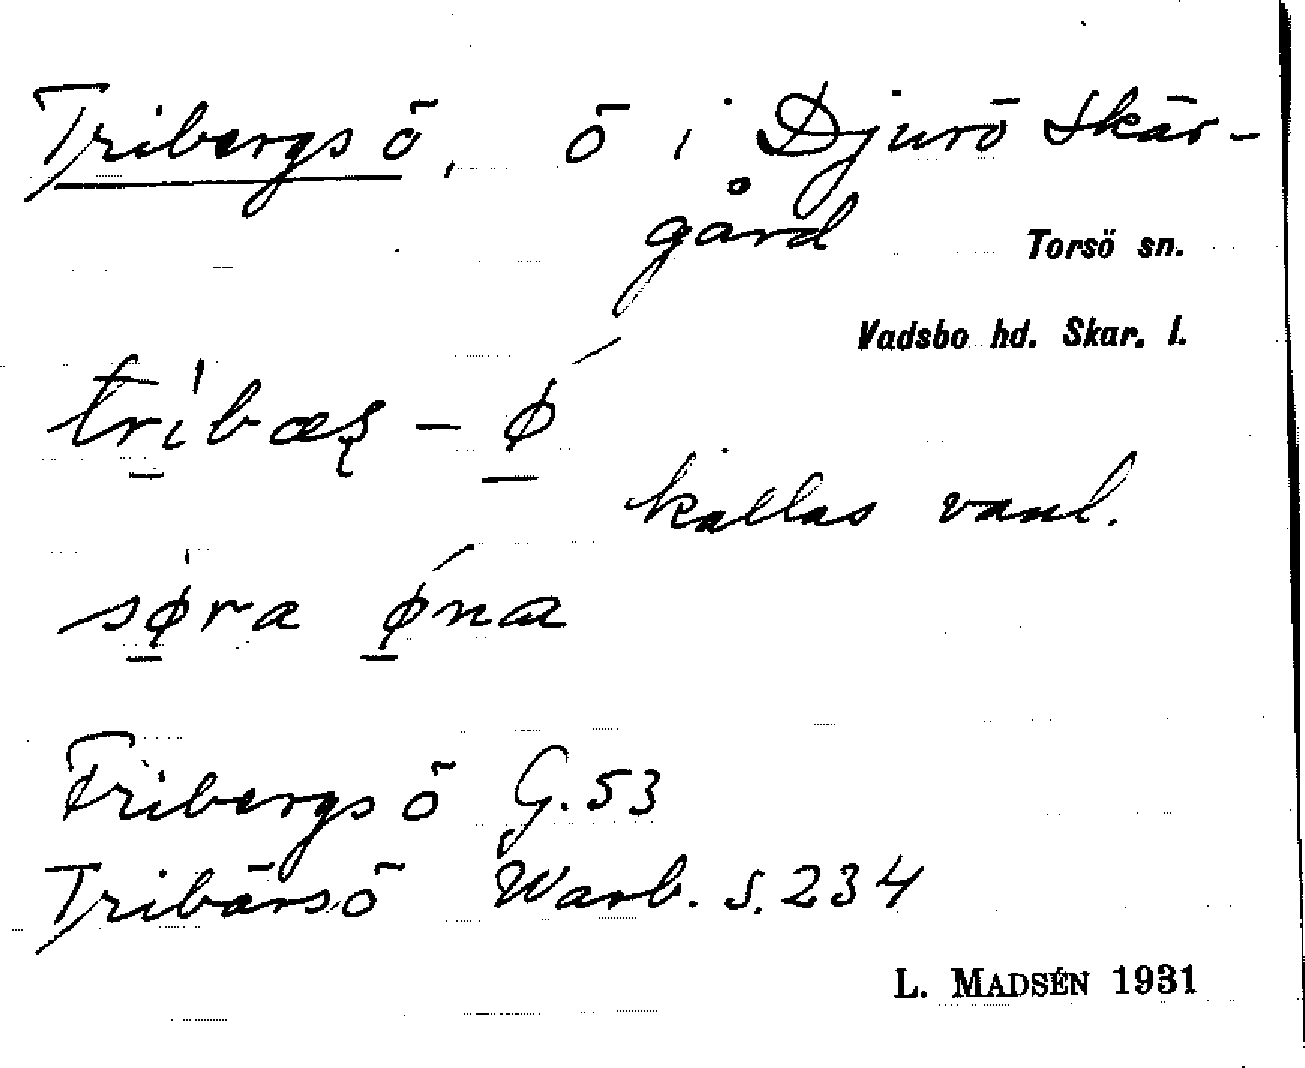 Tribergsö, ö i Djurö Skär-
gård
Torsö sn.
Vadsbo hd. Skar. l.
tribæʂ - ø
kallas vanl.
søra øna
Fribergsö G. 53
Tribärsö Warb. s. 234
L. MADSÉN 1931